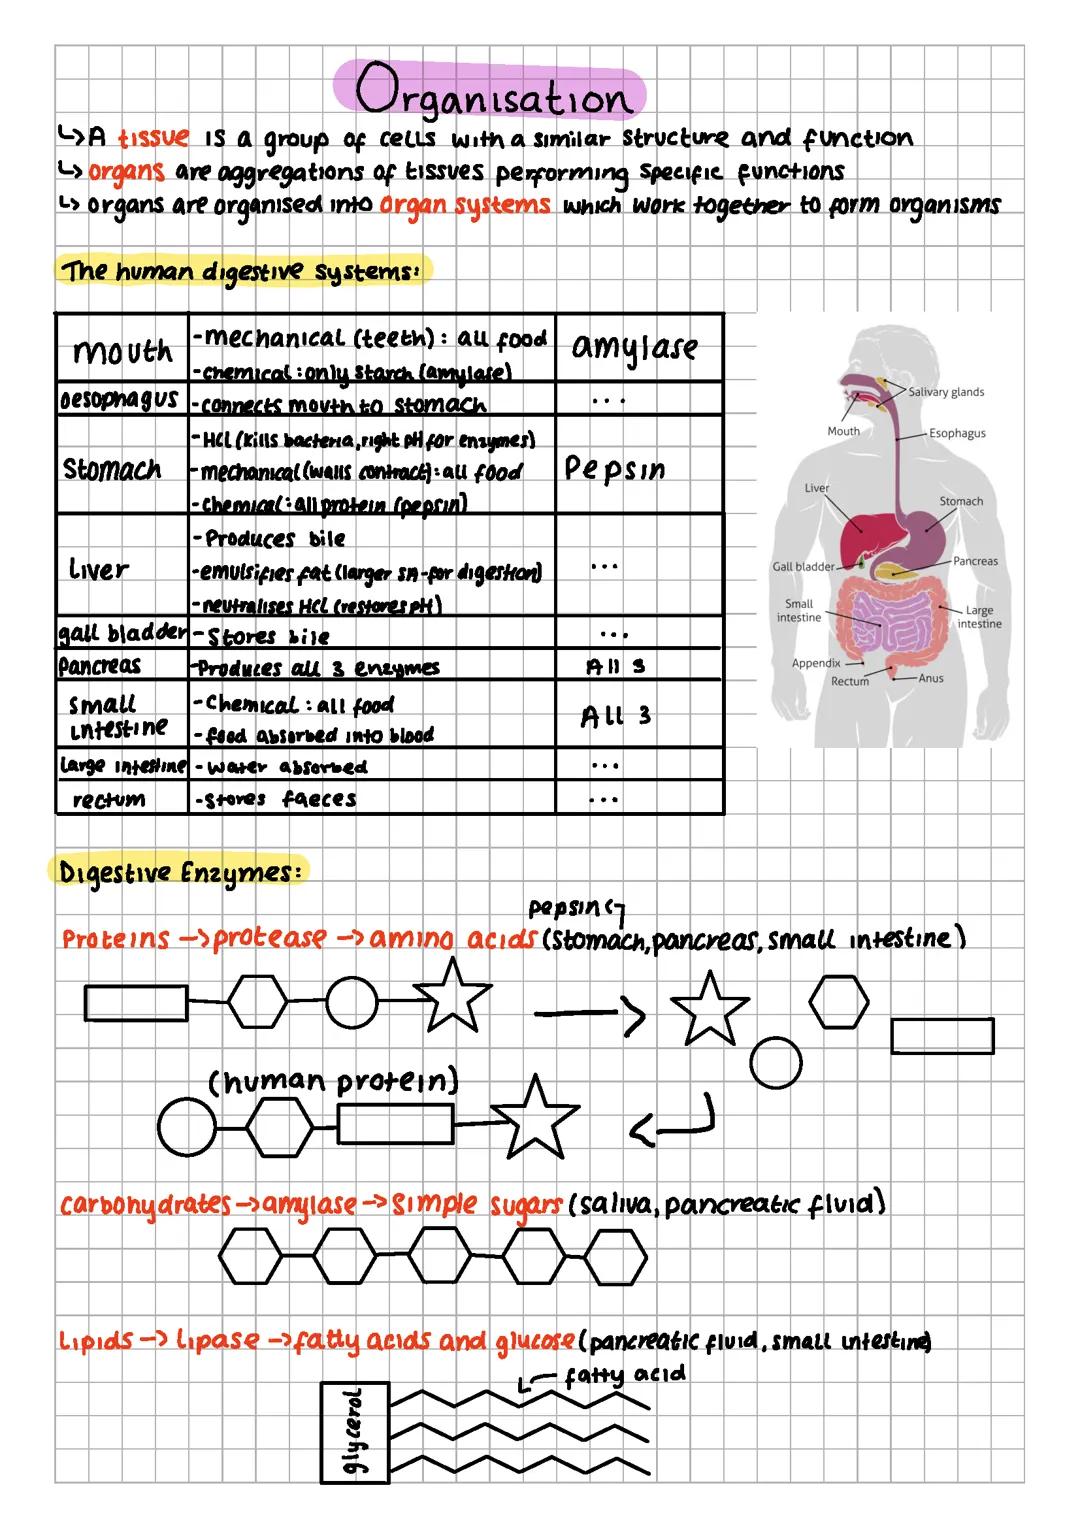 Organisation
↳A tissue is a group of cells with a similar structure and function
↳organs are aggregations of tissues performing specific functions
↳organs are organised into organ systems which work together to form organisms
The human digestive systems:
mouth
-mechanical (teeth): all food
-chemical: only starch (amylase)
amylase
oesophagus
-connects mouth to stomach
...
Stomach
-HCL (kills bacteria, right pH for enzymes)
-mechanical (walls contract): all food
-chemical: all protein (pepsin)
Pepsin
Liver
-Produces bile
-emulsifies fat (larger SA-for digestion)
-neutralises HCL (restores pH)
...
gall bladder
-Stores bile
...
Pancreas
-Produces all 3 enzymes
All 3
small
intestine
-Chemical: all food
-food absorbed into blood
All 3
Large intestine
-water absorbed
...
rectum
-Stores faeces
...
Salivary glands
Mouth
Esophagus
Liver
Stomach
Gall bladder
Pancreas
Small
intestine
Large
intestine
Appendix
Rectum
Anus
Digestive Enzymes:
pepsin
Proteins → protease → amino acids (Stomach, pancreas, small intestine)
(human protein)
carbohydrates → amylase → simple sugars (saliva, pancreatic fluid)
Lipids → lipase → fatty acids and glucose (pancreatic fluid, small intestine)
fatty acid
glycerol